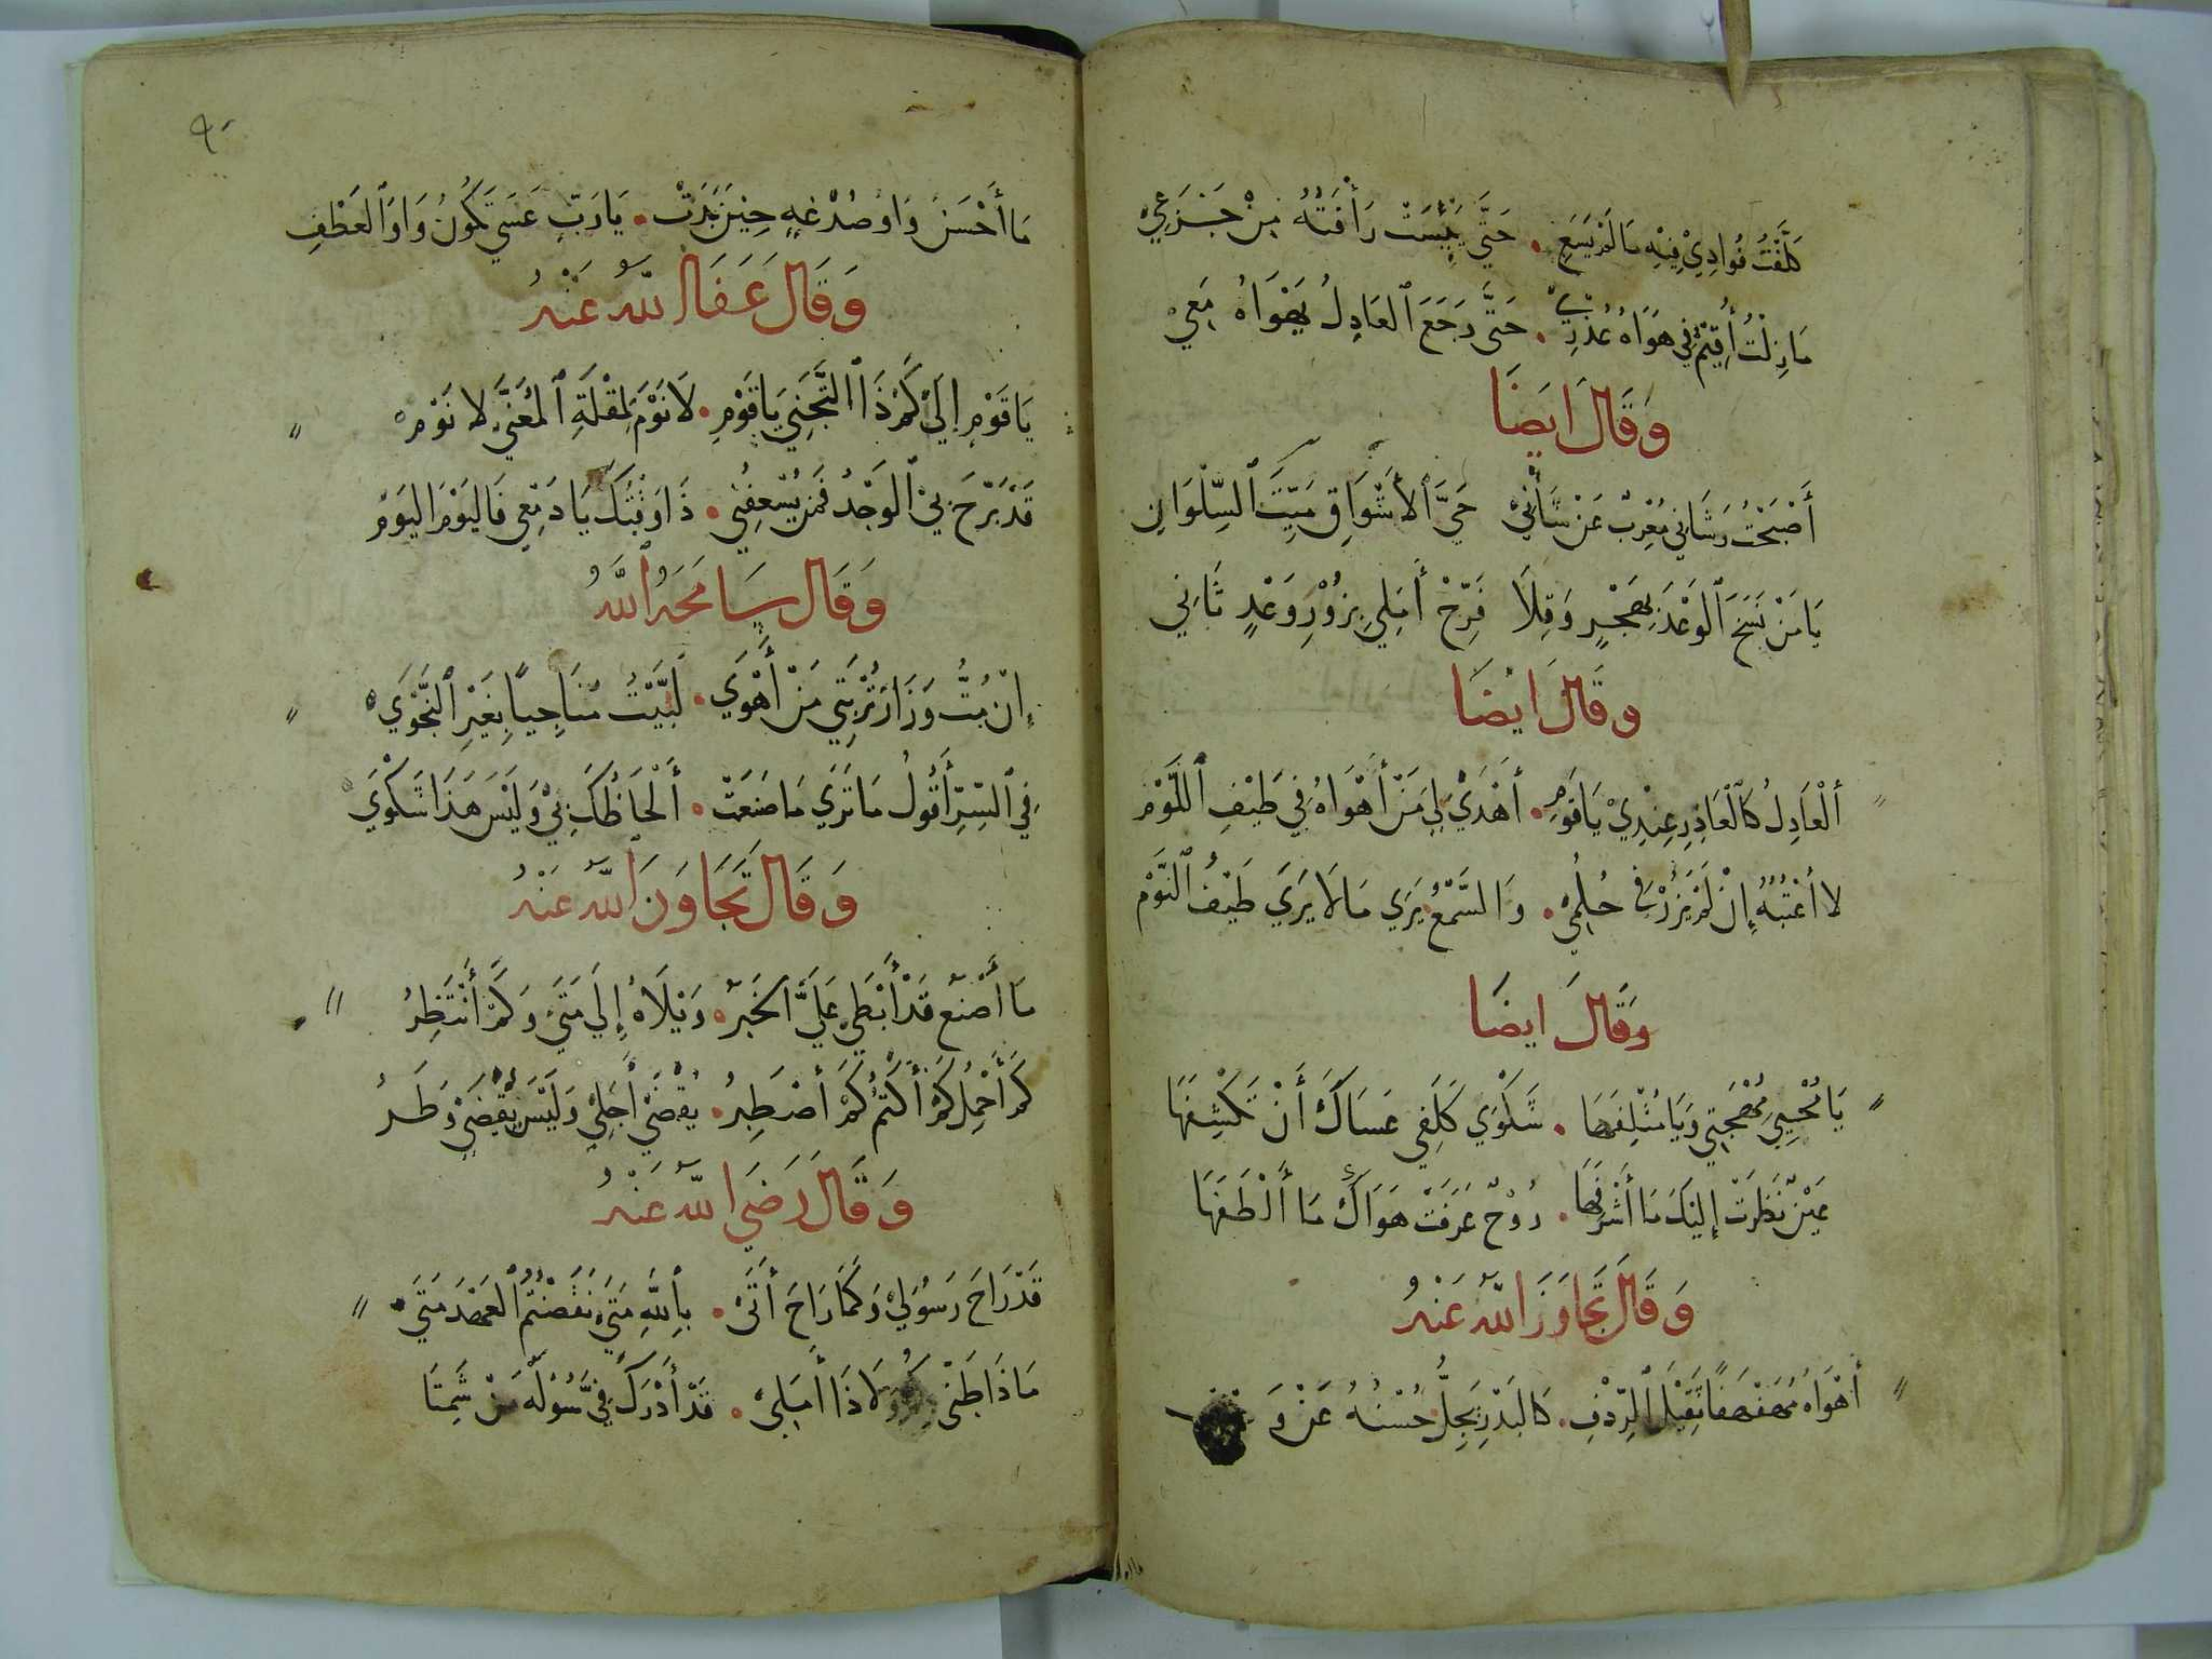 كَلَّفْتُ فُوَادِيْ فِيْهِ مَا لَمْ يَسَعِ . حَتَّى يَئِسَتْ رَأْفَتُهُ مِنْ جَزَعِيْ
مَا زِلْتُ أُقِيْمُ فِي هَوَاهُ عُذْرِيْ . حَتَّى رَجَعَ ٱلعَاذِلُ يَهْوَاهُ مَعِيْ
وَقَالَ ايضَا
أَصْبَحْتُ وَشَانِي مُعْرِبٌ عَنْ شَأْنِيْ حَيَّ ٱلأَشْوَاقِ مَيِّتَ ٱلسِّلْوَانِ
يَا مَنْ نَسَخَ ٱلوَعْدَ بِهَجْرٍ وَقِلَا فَرِّحْ أَمَلِي بِزُوْرِ وَعْدٍ ثَانِي
وقَالَ ايْضَا
أَلْعَاذِلُ كَٱلْعَاذِرِ عِنْدِيْ يَا قَوْمِ . أَهْدَيْ لِي مَنْ أَهْوَاهُ فِي طَيْفِ ٱللَّوْمِ
لا أَعْتِبُهُ إِنْ لَمْ يَزُرْ فِي حُلُمِيْ . وَالسَّمْعُ يَرَي مَا لَا يَرَي طَيْفُ ٱلنَّوْمِ
وَقَالَ ايضَا
يَا مُحْيِيَ مُهْجَتِي وَيَا مُتْلِفَهَا . شَكْوَي كَلَفِي عَسَاكَ أَنْ تَكْشِفَهَا
عَيْنٌ نَظَرَتْ إِلَيْكَ مَا أَشْرَفَهَا . رُوْحٌ عَرَفَتْ هَوَاكَ مَا أَلْطَفَهَا
وَقَالَ تَجَاوَزَ اللّٰهُ عَنْهُ
أَهْوَاهُ مُهَفْهَفًا ثَقِيْلَ ٱلرِّدْفِ . كَالبَدْرِ يَجِلُّ حُسْنُهُ عَنْ وَ
٩٠
مَا أَحْسَنَ وَاوَ صُدْغِهِ حِيْنَ بَدَتْ . يَا رَبّ عَسَي تَكُونُ وَاوَ ٱلعَطْفِ
وَقَالَ عَفَا اللّٰهُ عَنْهُ
يَا قَوْمِ إِلَيْ كَمْ ذَا ٱلتَّجَنِي يَا قَوْمِ . لَا نَوْمَ لِمُقْلَةِ ٱلمُعَنَّي لا نَوْمِ
قَدْ بَرَّحَ بِيْ ٱلوَجْدُ فَمَنْ يُسْعِفُنِي . ذَا وَقْتُكَ يَا دَمْعِي فَاليَوْمَ اليَوْمْ
وَقَال سَامَحَهُ ٱللّٰهُ
إِنْ مُتُّ وَزَارَ تُرْبَتِي مَنْ أَهْوَي . لَبَّيْتُ مُنَاجِيًا بِغَيْرِ ٱلنَّجْوَي
فِي ٱلسِّرِّ أَقُولُ مَا تَرَي مَا صَنَعَتْ . أَلْحَاظُكَ بِيْ وَلَيْسَ هَذَا شَكْوَي
وَقَالَ تَجَاوَزَ اللّٰهُ عَنْهُ
مَا أَصْنَعُ قَدْ أَبْطَي عَلَيَّ الخَبَرُ . وَيْلَاهُ إِلَي مَتَيْ وَكَمْ أَنْتَظِرُ
كَمْ أَحْمِلُ كَمْ أَكْتُمُ كَمْ أَصْطَبِرُ . يُقْضَيْ أَجَلِيْ وَلَيْسَ يُقْضَيْ وَطَرُ
وَقَالَ رَضِيَ اللّٰهُ عَنْهُ
قَدْ رَاحَ رَسُوْلِيْ وَكَمَا رَاحَ أَتَيْ . بِٱللّٰهِ مَتَيْ نَقَضْتُمُ ٱلعَهْدَ مَتَيْ
مَا ذَا ظَنِّي بِكُمْ وَلَا ذَا أَمَلِيْ . قَدْ أَدْرَكَ فِيَّ سُوْلَهُ مَنْ شَمِتَا